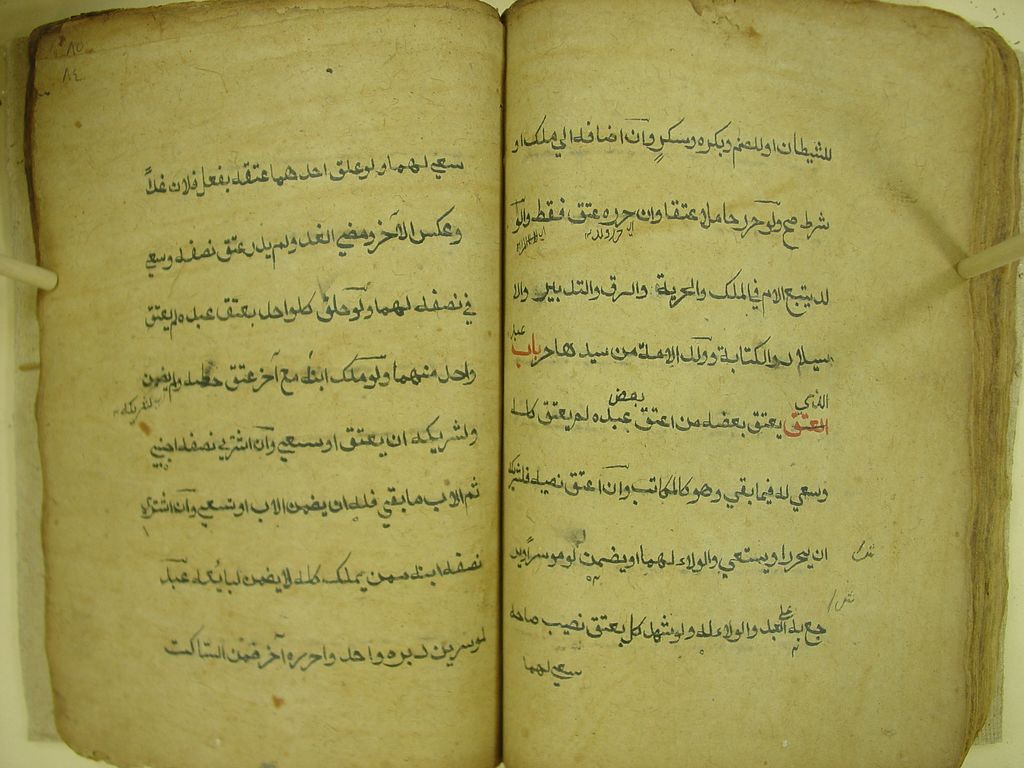 للشيطان او للصنم وبكره وسكر وان اضافه الي ملك او
شرط صح ولو حرر حاملا عتقا وان حرره عتق فقط والو
لد يتبع الام في الملك والحرية والرق والتدبير والا
ستيلاد والكتابة وولد الامة من سيدها حر باب عبد
الذي
المعتق يعتق بعضه من اعتق بعض عبده لم يعتق كله
وسعي له فيما بقي وهو كالمكاتب وان اعتق نصيبه فلشريكه
ان يحرر او يستسعي والولاء لهما او يضمن لو موسرا وير
جع به علي العبد والولاء له ولو شهد كل بعتق نصيب صاحبه
سعي لهما
٨٥
٨٤
سعي لهما ولو علق احدهما عتقه بفعل فلان غدا
وعكس الآخر ومضي الغد ولم يدر عتق نصفه وسعي
في نصفه لهما ولو حلف كل واحد بعتق عبده لم يعتق
واحد منهما ولو ملك ابنه مع آخر عتق حظه ولم يضمن
ولشريكه ان يعتق او يستسعي وان اشتري نصفه اجنبي
ثم الاب ما بقي فله ان يضمن الاب او يستسعي وان اشتري
نصفه ابنه ممن يملك كله لا يضمن لبايعه عبد
لموسرين دبره واحد وحرره آخر ضمن الساكت